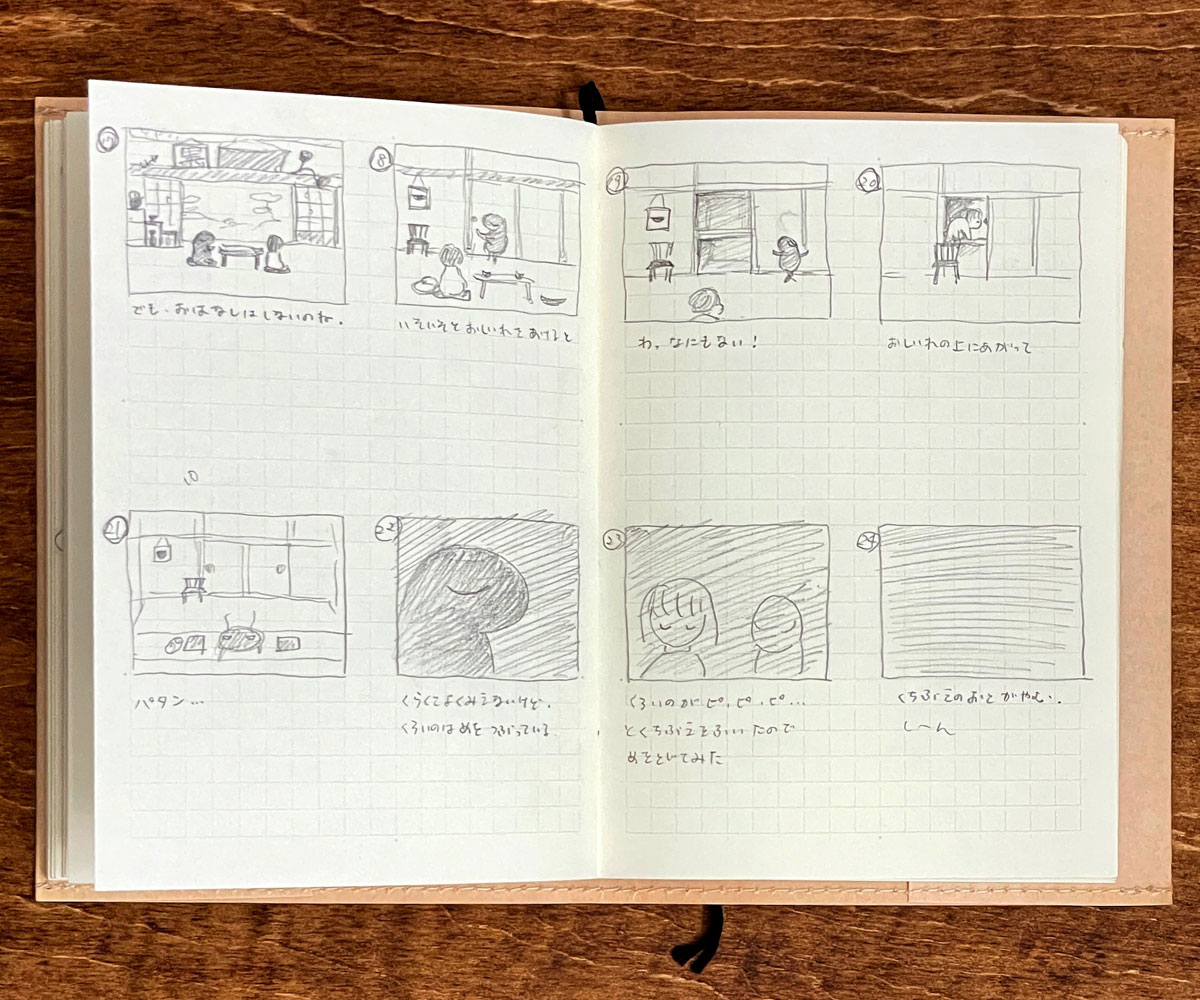 8
でも、おはなしはしないのね。
いそいそとおしいれをあけると
19
20
わ。なにもない!
おしいれの上にあがって
10
21
22
パタン…
くらくてよくみえないけど、
くろいのはめをつぶっている。
23
24
くろいのがピ、ピ、ピ…
とくちぶえをふいたので
めをとじてみた
くちぶえのおとがやむ。
しーん